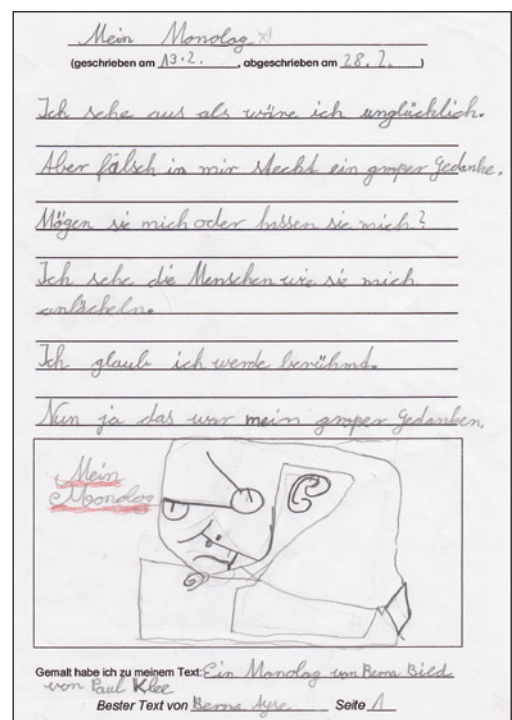 Mein Monolog
(geschrieben am 13.2. , abgeschrieben am 28.2. )
Ich sehe aus als wäre ich unglücklich.
Aber fälsch in mir steckt ein großer Gedanke.
Mögen sie mich oder hassen sie mich?
Ich sehe die Menschen wie sie mich
anlächeln.
Ich glaub ich werde berühmd.
Nun ja das war mein großer Gedanken.
Mein
Monolog
Gemalt habe ich zu meinem Text: Ein Monolog von Berna Bild
von Paul Klee
Bester Text von Berna Ayse Seite 1